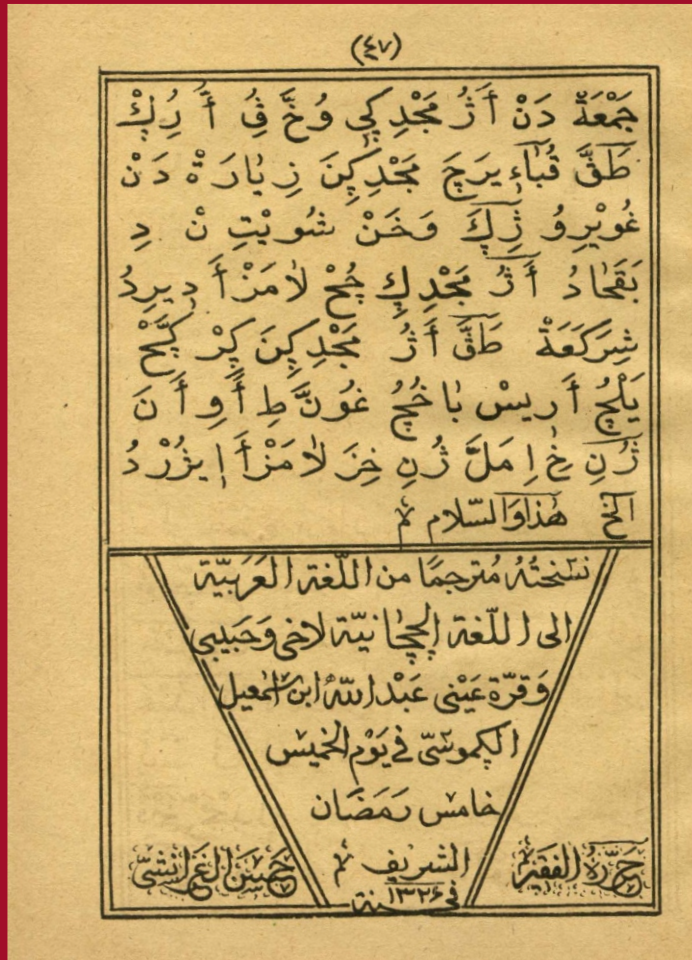 (٤٧)
جَمْعَةْ دَنْ أَثُرْ مَجْدِكِي وُخَّ فِ أَ رُكِ
طَقَّ قُبَاءِ يرَجَ مَجْدِكِنَ زِيَارَةْ دَنْ
غُويْرِوُ ژِكَ وَخَنْ شُويْتِ نْ دِ
بَقَحَادُ أَثُرْ مَجْدِكِ چُحْ لَامَزْ أَدِيرِدُ
شِرَكَعَةْ طَقَّ أَثُرْ مَجْدِكِنَ كِرْ
يَلْچُ أَرِيسْ بَاخُچُ غُونَّ طِ أَوِ أَنَ
ژُنِ خِ اِمَلَّ ژُنِ خِزَ لَامَزْ أَ اِيژُرْدُ
الخ هٰذا وَالسّلام م
نسَختُهُ مُترجمًا من اللّغة العَرَبيّة
الى اللّغة الچچانيّة لاخى وَحَبيبى
وَقرّة عَيْنى عَبْد اللّٰه ابن اسمٰعيل
الكموسّى فى يَوْم الخميس
خامس رَمَضَان
الشريف م
حَرّرهُ الفَقير
حَسَن الغَرانشىّ
فى سنة ١٣٢٦